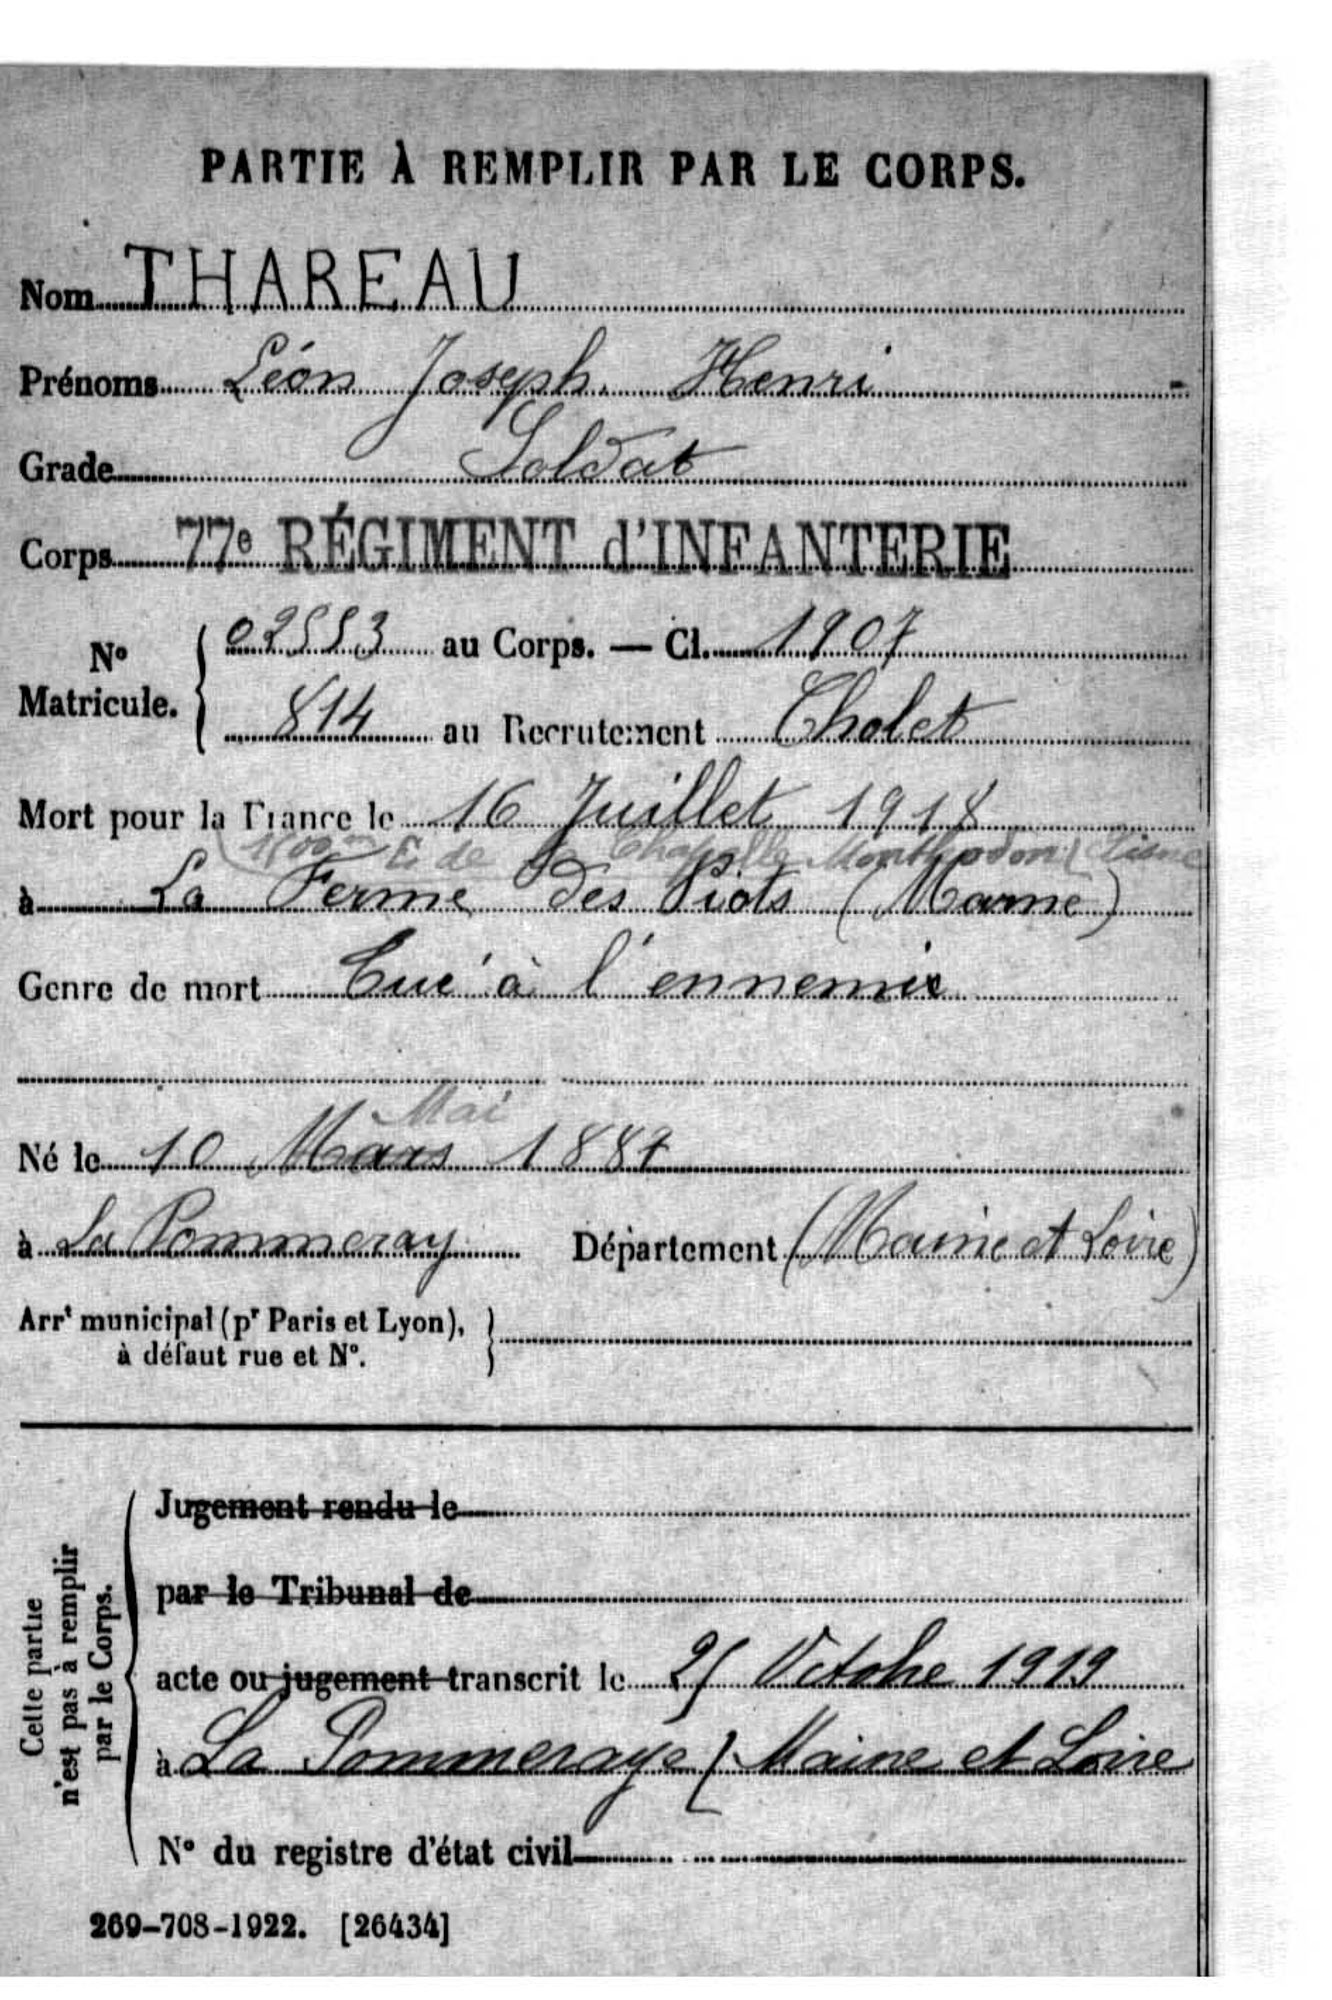 PARTIE À REMPLIR PAR LE CORPS.
Nom THAREAU
Prénoms Léon Joseph Henri
Grade Soldat
Corps 77e RÉGIMENT d'INFANTERIE
N° Matricule. 02553 au Corps. — Cl. 1907
814 au Recrutement Cholet
Mort pour la France le 16 Juillet 1918
E de la Chapelle Monthodon (Aisne
à La Ferme des Piots (Marne)
Genre de mort Tué à l'ennemie
Mai
Né le 10 Mars 1887
à La Pommeray Département (Maine et Loire)
Arrt municipal (pr Paris et Lyon),
à défaut rue et N°.
Cette partie
n'est pas à remplir
par le Corps.
Jugement rendu le
par le Tribunal de
acte ou jugement transcrit le 25 Octobre 1919
à La Pommeraye (Maine et Loire
N° du registre d'état civil
269-708-1922. [26434]